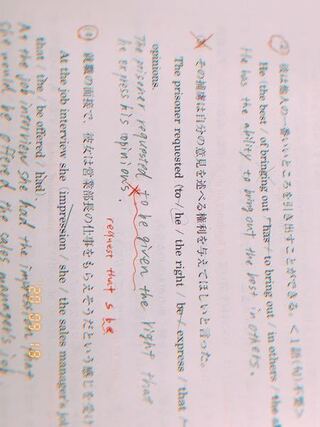 ② 彼は他人の一番いいところを引き出すことができる。＜1語(句)不要＞
He / the best / of bringing out / has / to bringing out / in others / the
He has the ability to bring out the best in others.
③ その捕虜は自分の意見を述べる権利を与えてほしいと言った。
The prisoner requested (to / he / the right / be / express / that /
opinions.
The prisoner requested to be given the right that
he express his opinions.
request that S be
④ 就職の面接で，彼女は営業部長の仕事をもらえそうだという感じを受け
At the job interview she (impression / she / the sales manager's
that / the / be offered / had
At the job interview she had the impression that
she would be offered the sales manager's